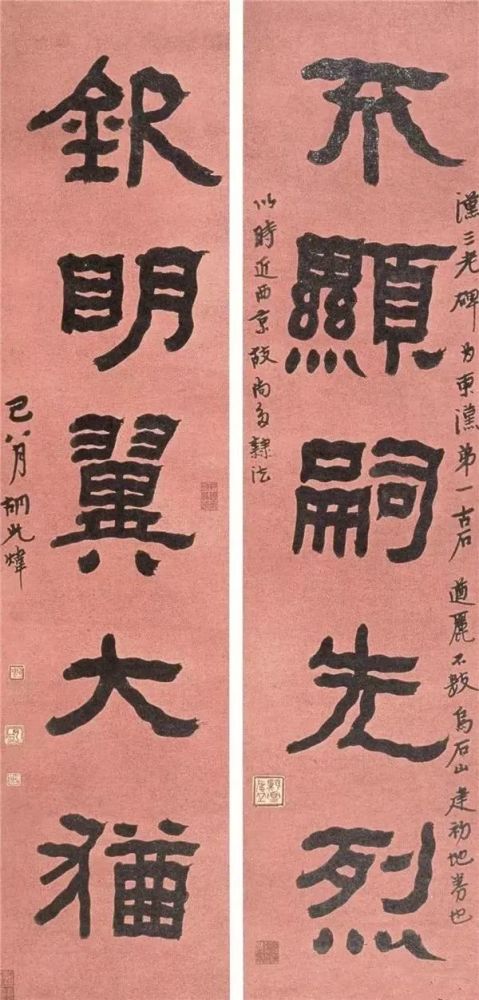 漢三老碑为東漢弟一古石遒麗不數烏石山建初地券也
不顯嗣先烈
以時近西京故尚多隸法
欽明翼大猶
巳八月胡光煒